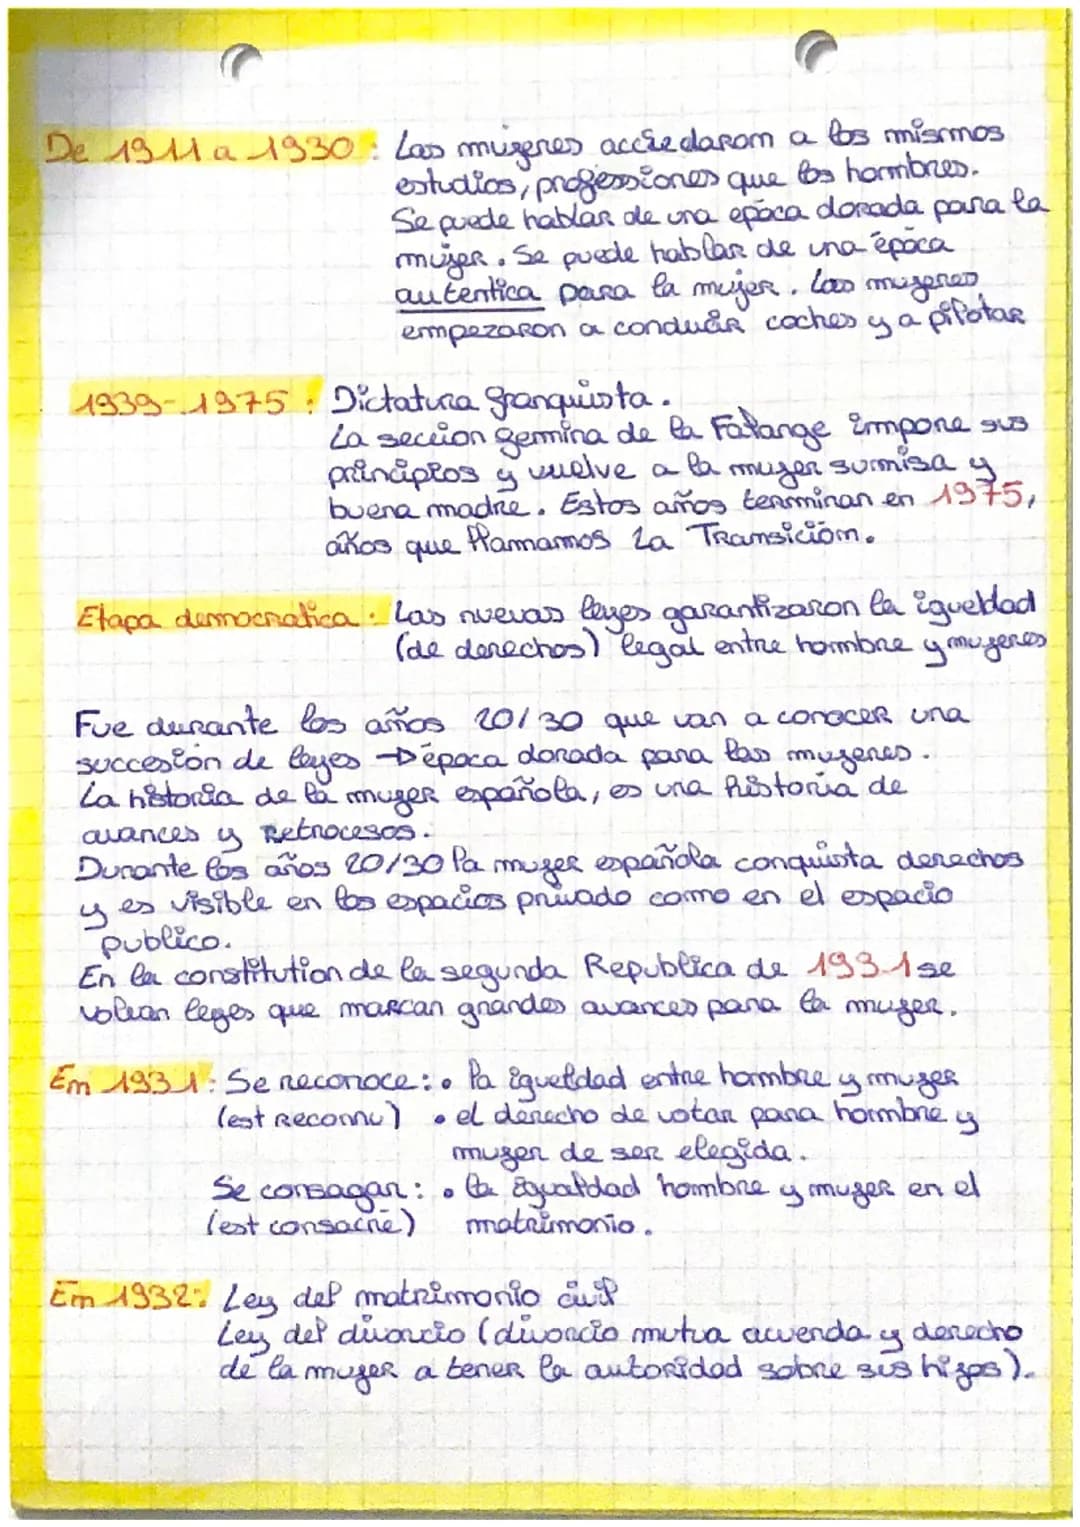 De 1911 a 1930 : Las mujeres acciedarom a los mismos
estudios, professiones que los hombres.
Se puede hablar de una epoca dorada para la
mujer. Se puede hablar de una época
autentica para la mujer. Las mujeres
empezaron a conducir coches y a pilotar
1939-1975 : Dictatura franquista.
La seccion femina de la Falange impone sus
principios y vuelve a la mujer sumisa y
buena madre. Estos años terminan en 1975,
años que llamamos La Transición.
Etapa democratica : Las nuevas leyes garantizaron la igueldad
(de derechos) legal entre hombre y mujeres
Fue durante los años 20/30 que van a conocer una
succesión de leyes → época dorada para las mujeres.
La historia de la mujer española, es una historia de
avances y retrocesos.
Durante los años 20/30 la mujer española conquista derechos
y es visible en los espacios privado como en el espacio
publico.
En la constitution de la segunda Republica de 1931 se
votan leyes que marcan grandes avances para la mujer.
Em 1931 : Se reconoce : • la igueldad entre hombre y mujer
(est reconnu) • el derecho de votar para hombre y
mujer de ser elegida.
Se consagan : • la igualdad hombre y mujer en el
(est consacré) matrimonio.
Em 1932 : Ley del matrimonio civil
Ley del divorcio (divorcio mutua acuenda y derecho
de la mujer a tener la autoridad sobre sus hijos).